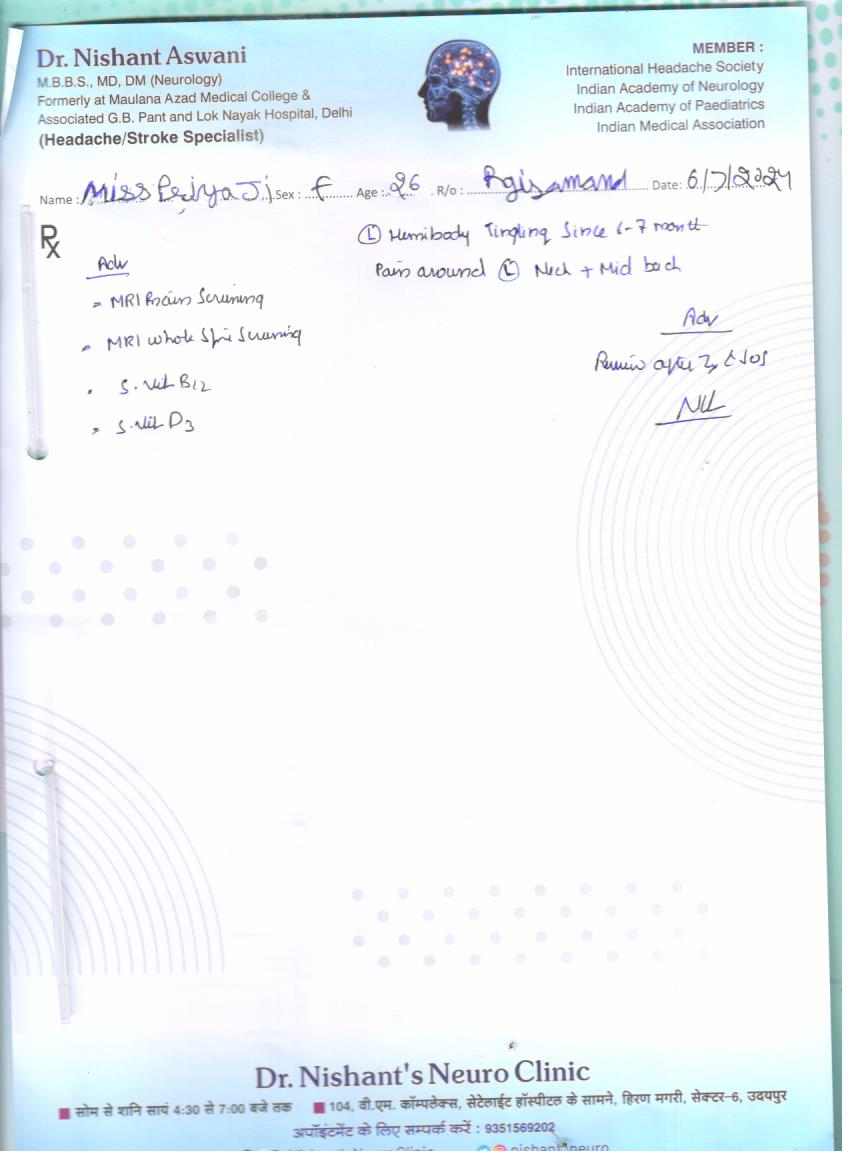 Dr. Nishant Aswani
M.B.B.S., MD, DM (Neurology)
Formerly at Maulana Azad Medical College &
Associated G.B. Pant and Lok Nayak Hospital, Delhi
(Headache/Stroke Specialist)
MEMBER :
International Headache Society
Indian Academy of Neurology
Indian Academy of Paediatrics
Indian Medical Association
Name : Miss Priya Ji Sex : F Age : 26 R/o : Rajsamand Date: 6/7/2024
Rx
Ⓛ Hemibody Tingling Since 6-7 month
Pain around Ⓛ Neck + Mid back
Adv
MRI Brain Screening
MRI whole Spine Screening
S. Vit B12
S. Vit D3
Adv
Review after SOS
Dr. Nishant's Neuro Clinic
सोम से शनि सायं 4:30 से 7:00 बजे तक 104, वी.एम. कॉम्पलेक्स, सेटेलाईट हॉस्पीटल के सामने, हिरण मगरी, सेक्टर-6, उदयपुर
अपॉइंटमेंट के लिए सम्पर्क करें : 9351569202